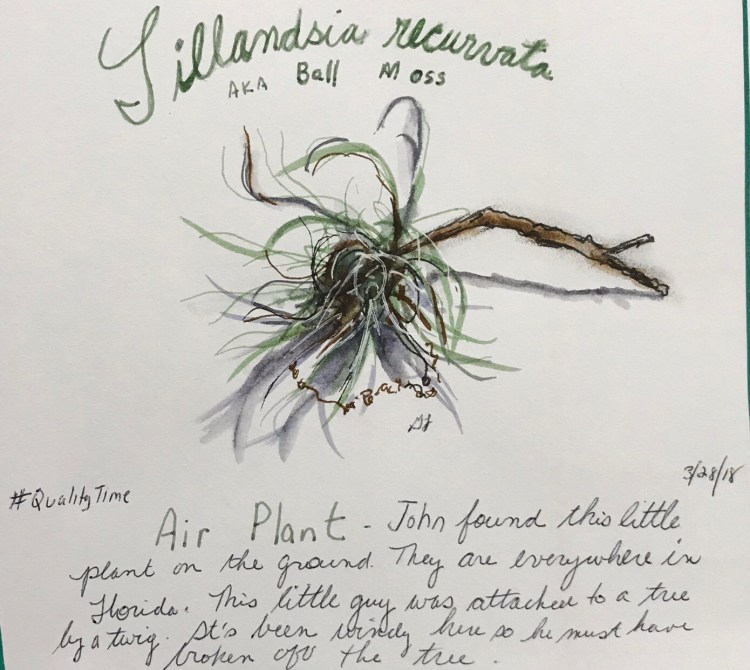 Tillandsia recurvata
AKA Ball Moss
3/28/18
#QualityTime
Air Plant - John found this little
plant on the ground. They are everywhere in
Florida. This little guy was attached to a tree
by a twig. It's been windy here so he must have
broken off the tree.